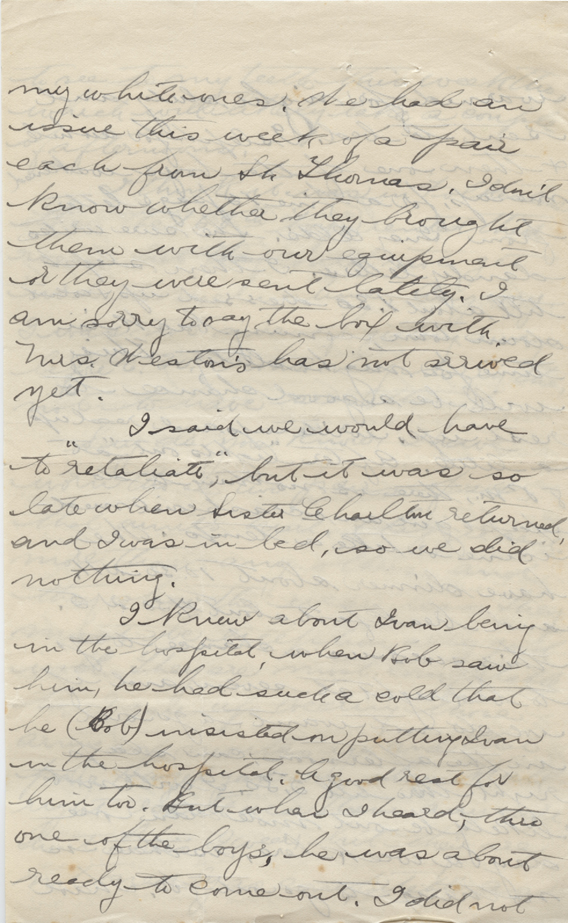 my white ones. We had an
issue this week of a pair
each from St. Thomas. I don't
know whether they brought
them with our equipment
or they were sent lately. I
am sorry to say the box with
Mrs. Weston's has not arrived
yet.
I said we would have
to "retaliate", but it was so
late when Sister returned,
and I was in bed, so we did
nothing.
I knew about Ivan being
in the hospital, when Bob saw
him, he had such a cold that
he (Bob) insisted on putting Ivan
in the hospital. A good rest for
him too. But when I heard, thro
one of the boys, he was about
ready to come out. I did not